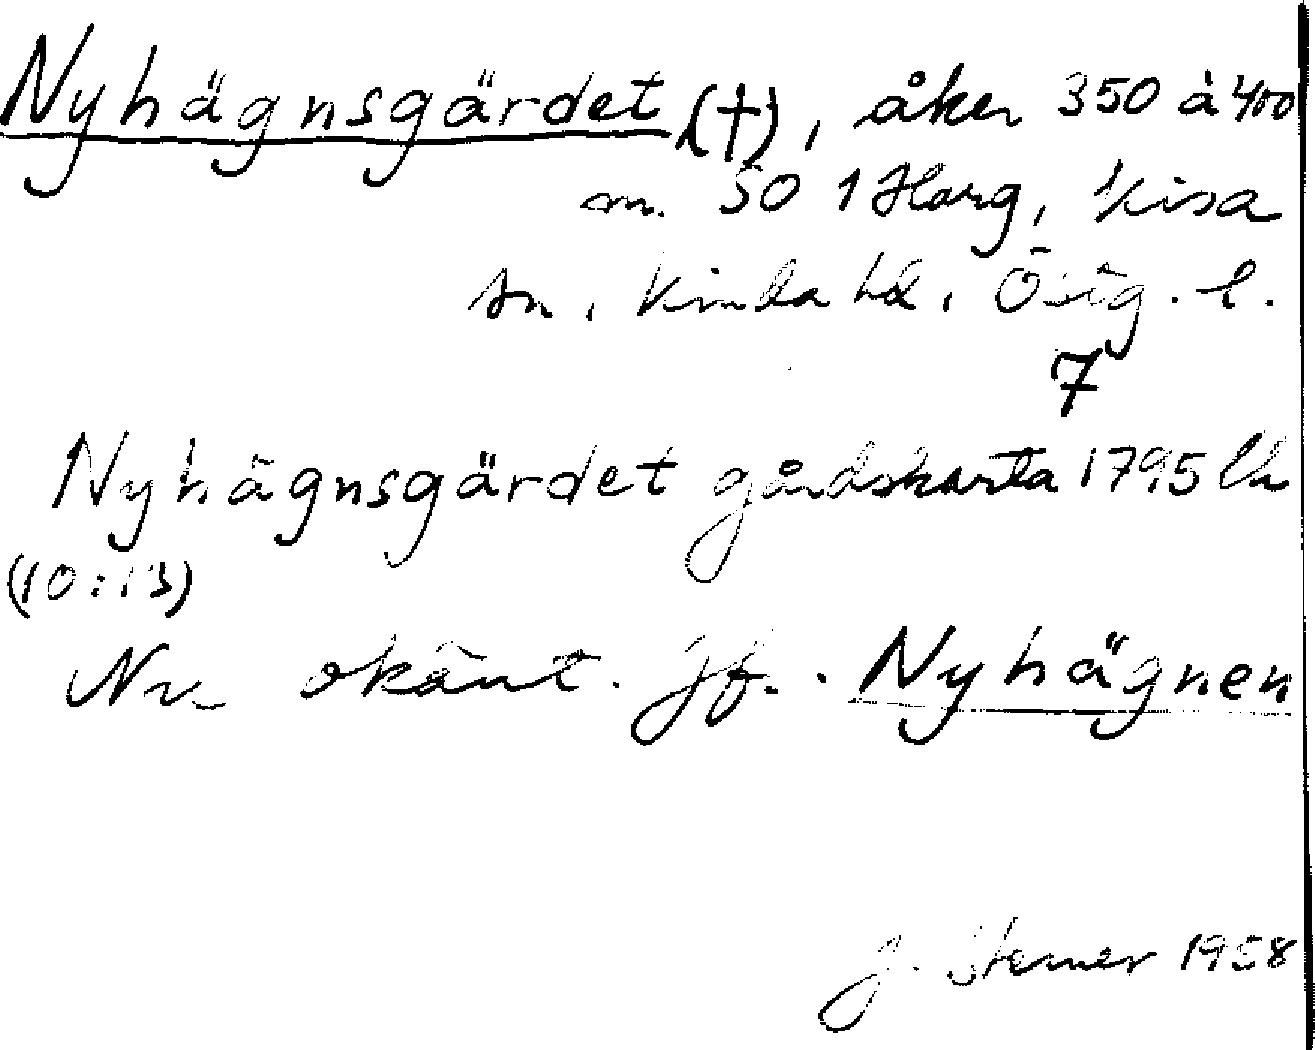 Nyhägnsgärdet (†), åker 350 à 400
m. SO 1 Harg, Kisa
sn, Kinda hd, Östg. l.
7
Nyhägnsgärdet gårdskarta 1795 Lk
(10:13)
Nu okänt. Jf. Nyhägnen
J. Sterner 1958